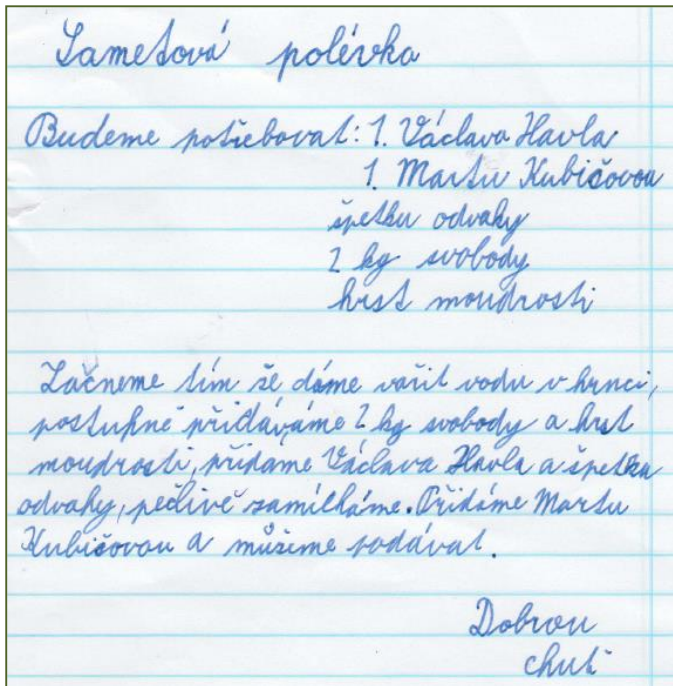 Sametová polévka
Budeme potřebovat: 1. Václava Havla
1. Martu Kubišovou
špetku odvahy
2 kg svobody
hrst moudrosti
Začneme tím že dáme vařit vodu v hrnci,
postupně přidáváme 2 kg svobody a hrst
moudrosti, přidáme Václava Havla a špetku
odvahy, pečlivě zamícháme. Přidáme Martu
Kubišovou a můžeme podávat.
Dobrou
chuť